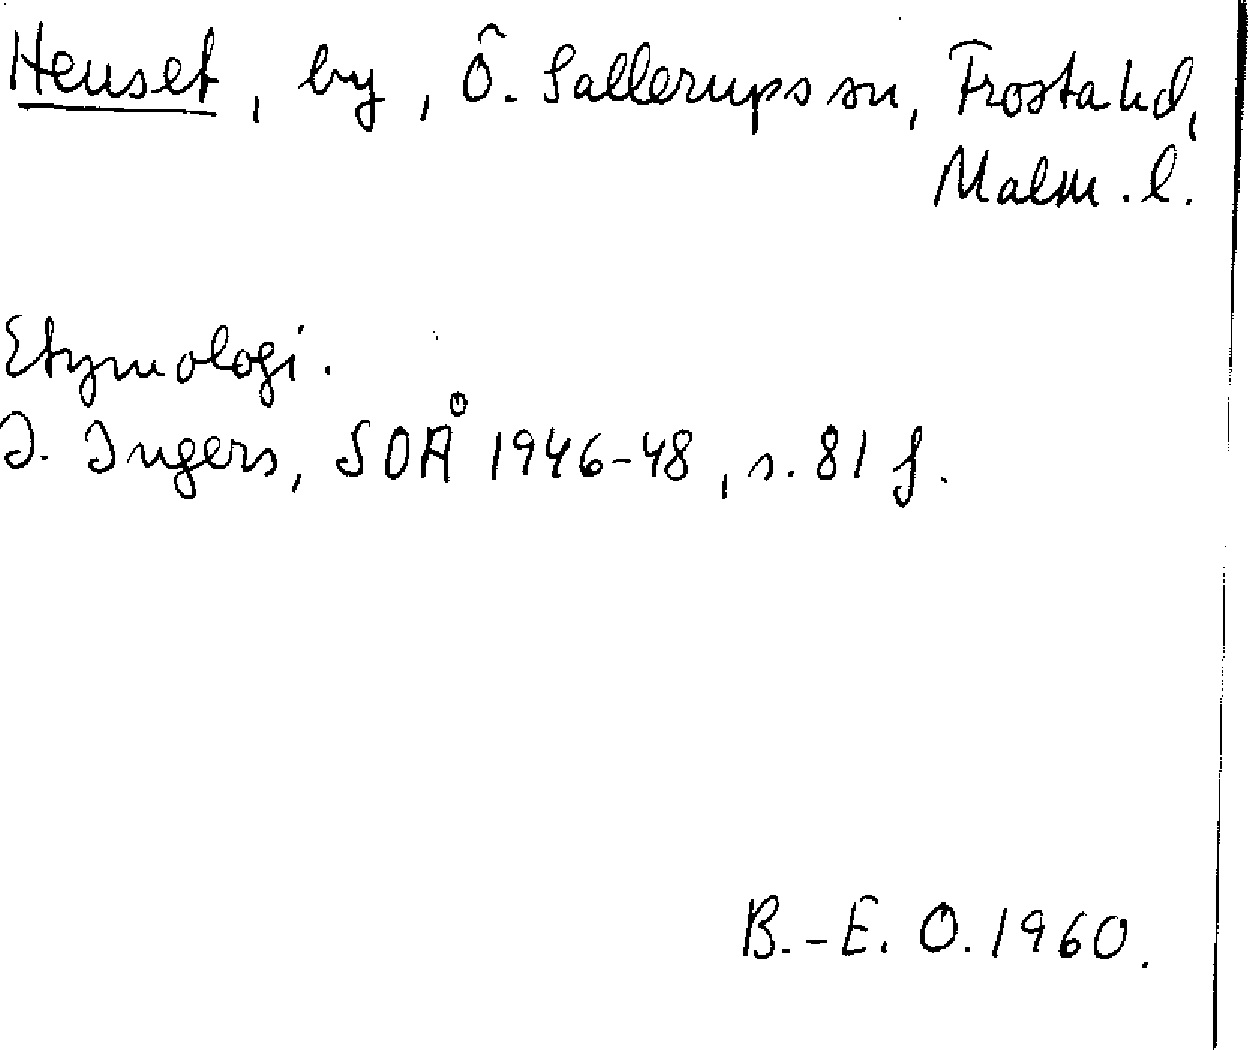 Henset, by, Ö. Sallerups sn, Frosta hd,
Malm. l.
Etymologi.
I. Ingers, SOÅ 1946-48, s. 81 f.
B.-E. O. 1960.